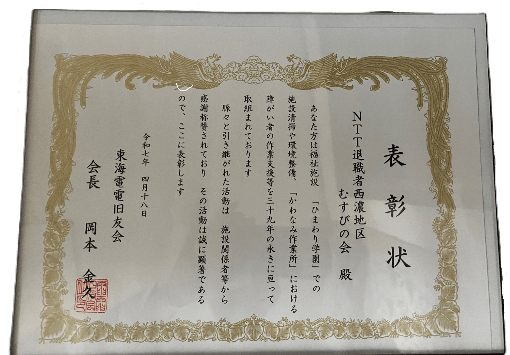 表彰状
NTT退職者西濃地区
むすびの会 殿
あなた方は福祉施設 「ひまわり学園」での
施設清掃や環境整備、「かわなみ作業所」における
障がい者の作業支援等を三十九年の永きに亘って
取組まれております
脈々と引き継がれた活動は 施設関係者等から
感謝称賛されており その活動は誠に顕著である
ので、ここに表彰します
令和七年 四月十八日
東海電電旧友会
会長 岡本 金久